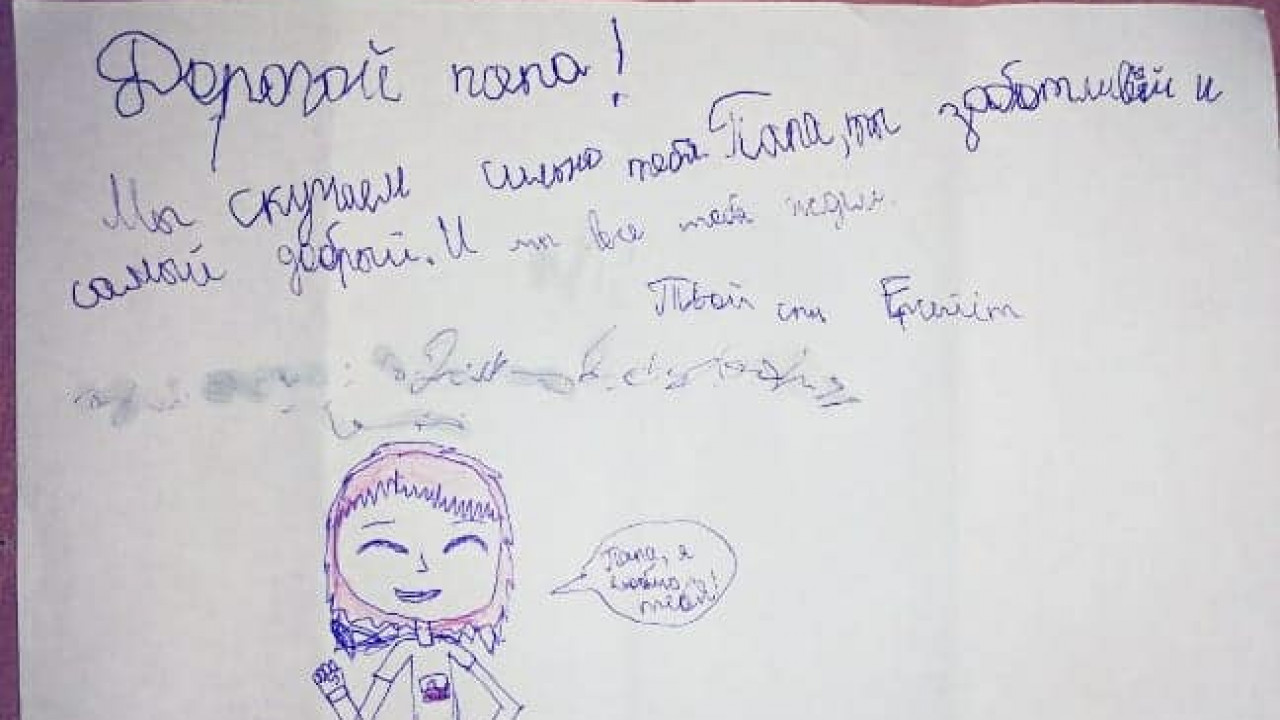 Дорогой папа!
Мы скучаем сильно тебя Папа, ты заботливый и
самый добрый. И мы все тебя ждём.
Твой сын
Папа, я
люблю
тебя!